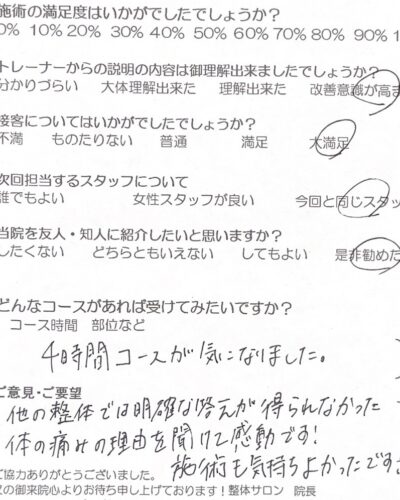 施術の満足度はいかがでしたでしょうか？
0% 10% 20% 30% 40% 50% 60% 70% 80% 90% 1
トレーナーからの説明の内容は御理解出来ましたでしょうか？
分かりづらい 大体理解出来た 理解出来た 改善意識が高ま
接客についてはいかがでしたでしょうか？
不満 ものたりない 普通 満足 大満足
次回担当するスタッフについて
誰でもよい 女性スタッフが良い 今回と同じスタッ
当院を友人・知人に紹介したいと思いますか？
したくない どちらともいえない してもよい 是非勧めた
どんなコースがあれば受けてみたいですか？
コース時間 部位など
4時間コースが気になりました。
ご意見・ご要望
他の整体では明確な答えが得られなかった
体の痛みの理由を聞けて感動です!
施術も気持ちよかったです
ご協力ありがとうございました。
又の御来院心よりお待ち申し上げております！整体サロン 院長